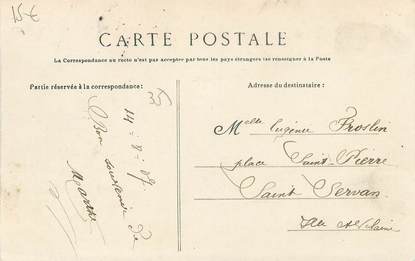 15€
CARTE POSTALE
La Correspondance au recto n'est pas acceptée par tous les pays étrangers (se renseigner à la Poste
Partie réservée à la correspondance:
Adresse du destinataire:
14-8-07
Bon souvenir de
Melle Eugénie
place Saint-Pierre
Saint Servan
Ille et Vilaine